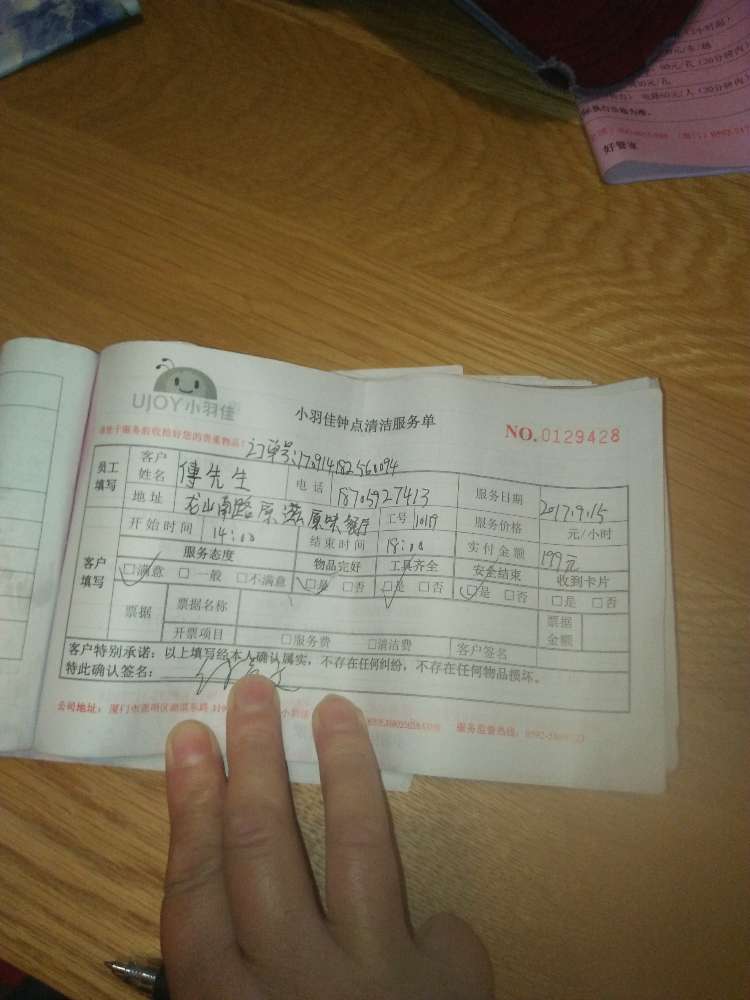 好管家
UJOY小羽佳
小羽佳钟点清洁服务单
NO.0129428
订单号:
员工填写
客户姓名
傅先生
电话
18705927413
服务日期
2017.9.15
地址
龙山南路原滋原味餐厅
工号
1019
服务价格
元/小时
开始时间
14:00
结束时间
18:00
实付金额
199元
客户填写
服务态度
物品完好
工具齐全
安全结束
收到卡片
□满意 □一般 □不满意
□是 □否
□是 □否
□是 □否
□是 □否
票据
票据名称
票据金额
开票项目
□服务费 □清洁费
客户签名
客户特别承诺:以上填写经本人确认属实,不存在任何纠纷,不存在任何物品损坏。
特此确认签名:
公司地址:厦门市思明区
服务监督热线: